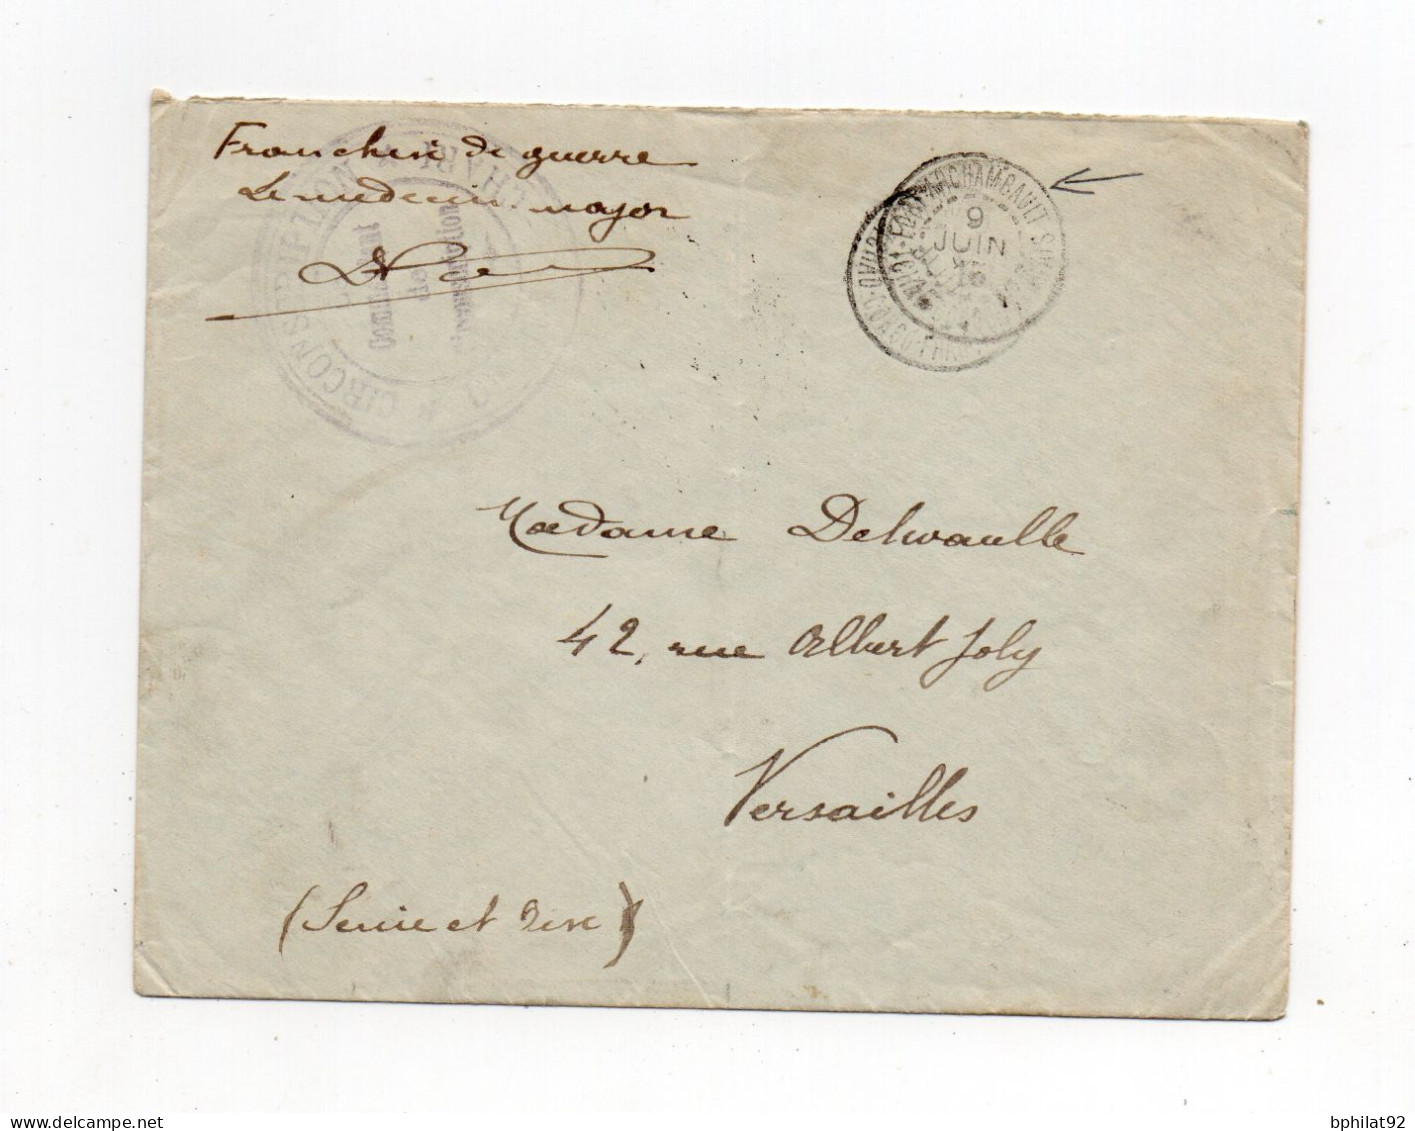 Franchise de guerre
Le medecin major
CIRCONS
Commandant
de
Circonscription
FORT ARCHAMBAULT
9
JUIN
Madame Delwaulle
42, rue Albert Joly
Versailles
(Seine et Oise)
bphilat92